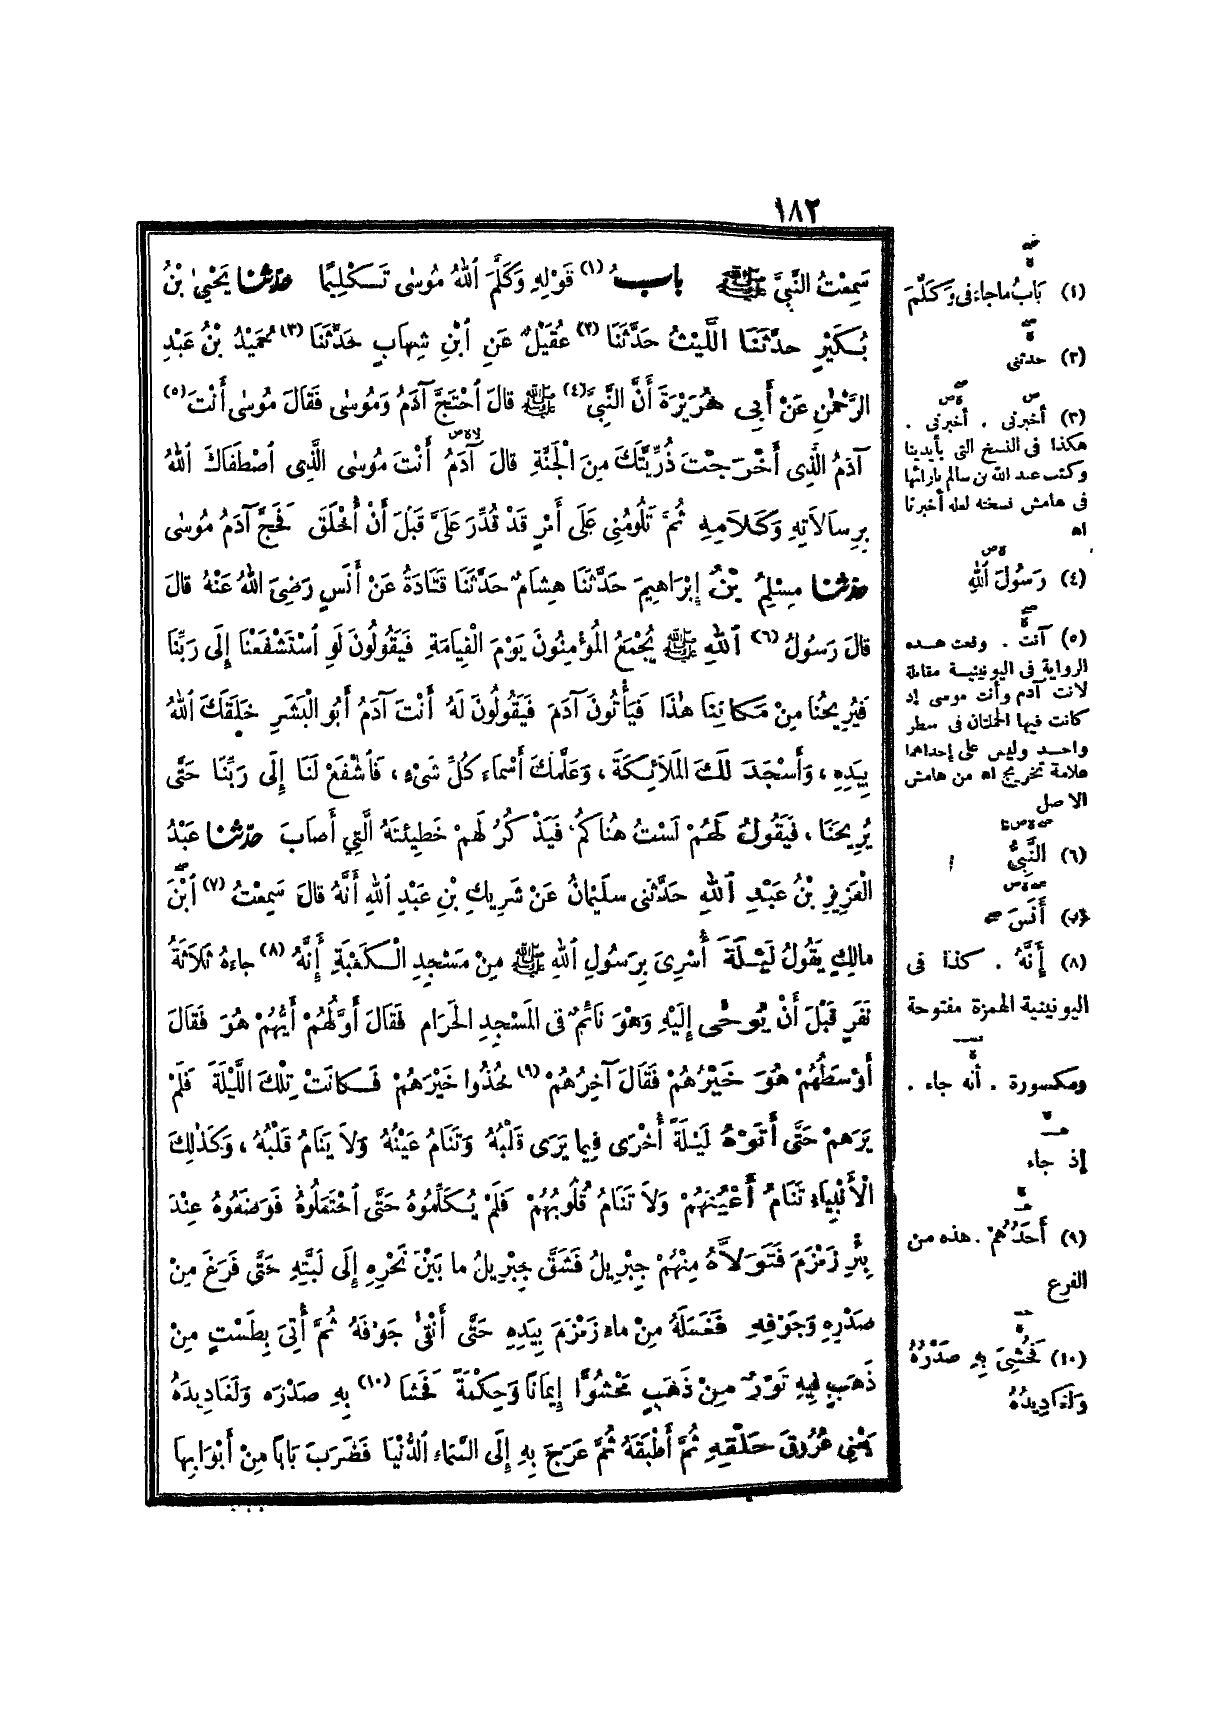 ١٨٢
سَمِعْتُ النَّبِيَّ ﷺ بابُ (١) قَوْلِهِ وَكَلَّمَ اللهُ مُوسٰى تَكْلِيمًا حدّثنا يَحْيىٰ بْنُ
بُكَيْرٍ حدَّثَنَا اللَّيْثُ حَدَّثَنَا (٢) عُقَيْلٌ عَنِ ابْنِ شِهَابٍ حَدَّثَنَا (٣) حُمَيْدُ بْنُ عَبْدِ
الرَّحْمٰنِ عَنْ أَبِي هُرَيْرَةَ أَنَّ النَّبِيَّ (٤) ﷺ قالَ احْتَجَّ آدَمُ وَمُوسٰى فَقَالَ مُوسٰى أَنْتَ (٥)
آدَمُ الَّذِى أَخْرَجْتَ ذُرِّيَّتَكَ مِنَ الْجَنَّةِ قالَ آدَمُ أَنْتَ مُوسٰى الَّذِى اصْطَفَاكَ اللهُ
بِرِسَالَاتِهِ وَكَلَامِهِ ثُمَّ تَلُومُنِى عَلَى أَمْرٍ قَدْ قُدِّرَ عَلَيَّ قَبْلَ أَنْ أُخْلَقَ فَحَجَّ آدَمُ مُوسٰى
حدّثنا مُسْلِمُ بْنُ إِبْرَاهِيمَ حَدَّثَنَا هِشَامٌ حَدَّثَنَا قَتَادَةُ عَنْ أَنَسٍ رَضِىَ اللهُ عَنْهُ قالَ
قالَ رَسُولُ (٦) اللهِ ﷺ يُجْمَعُ الْمُؤْمِنُونَ يَوْمَ الْقِيَامَةِ فَيَقُولُونَ لَوِ اسْتَشْفَعْنَا إِلَى رَبِّنَا
فَيُرِيحُنَا مِنْ مَكانِنَا هٰذَا فَيَأْتُونَ آدَمَ فَيَقُولُونَ لَهُ أَنْتَ آدَمُ أَبُو الْبَشَرِ خَلَقَكَ اللهُ
بِيَدِهِ ، وَأَسْجَدَ لَكَ المَلَائِكَةَ ، وَعَلَّمَكَ أَسْماءَ كُلِّ شَىْءٍ ، فَاشْفَعْ لَنَا إِلَى رَبِّنَا حَتَّى
يُرِيحَنَا ، فَيَقُولُ لَهُمْ لَسْتُ هُنَاكُمْ فَيَذْكُرُ لَهُمْ خَطِيئَتَهُ الَّتِي أَصَابَ حدّثنا عَبْدُ
الْعَزِيزِ بْنُ عَبْدِ اللهِ حَدَّثَنِى سلَيْمانُ عَنْ شَرِيكِ بْنِ عَبْدِ اللهِ أَنَّهُ قالَ سَمِعْتُ (٧) ابْنَ
مالِكٍ يَقُولُ لَيْلَةَ أُسْرِىَ بِرَسُولِ اللهِ ﷺ مِنْ مَسْجِدِ الْكَعْبَةِ إِنَّهُ (٨) جاءَهُ ثَلَاثَةُ
نَفَرٍ قَبْلَ أَنْ يُوحٰى إِلَيْهِ وَهْوَ نَائِمٌ فى المَسْجِدِ الحَرَامِ فَقَالَ أَوَّلُهُمْ أَيُّهُمْ هُوَ فَقَالَ
أَوْسَطُهُمْ هُوَ خَيْرُهُمْ فَقَالَ آخِرُهُمْ (٩) خُذُوا خَيْرَهُمْ فَكانَتْ تِلْكَ اللَّيْلَةَ فَلَمْ
يَرَهُمْ حَتَّى أَتَوْهُ لَيْلَةً أُخْرَى فِيما يَرَى قَلْبُهُ وَتَنَامُ عَيْنُهُ وَلَا يَنَامُ قَلْبُهُ ، وَكَذٰلِكَ
الْأَنْبِيَاءُ تَنَامُ أَعْيُنُهُمْ وَلَا تَنَامُ قُلُوبُهُمْ فَلَمْ يُكَلِّمُوهُ حَتَّى احْتَمَلُوهُ فَوَضَعُوهُ عِنْدَ
بِئْرِ زَمْزَمَ فَتَوَلَّاهُ مِنْهُمْ جِبْرِيلُ فَشَقَّ جِبْرِيلُ ما بَيْنَ نَحْرِهِ إِلَى لَبَّتِهِ حَتَّى فَرَغَ مِنْ
صَدْرِهِ وَجَوْفِهِ فَغَسَلَهُ مِنْ ماءِ زَمْزَمَ بِيَدِهِ حَتَّى أَنْقىٰ جَوْفَهُ ثُمَّ أُتِىَ بِطَسْتٍ مِنْ
ذَهَبٍ فِيهِ تَوْرٌ مِنْ ذَهَبٍ مَحْشُوًّا إِيمَانًا وَحِكْمَةً فَحَشا (١٠) بِهِ صَدْرَهُ وَلَغَادِيدَهُ
يَعْنِى عُرُوقَ حَلْقِهِ ثُمَّ أَطْبَقَهُ ثُمَّ عَرَجَ بِهِ إِلَى السَّمَاءِ الدُّنْيَا فَضَرَبَ بَابًا مِنْ أَبْوَابِهَا
(١) بَابُ ماجاءَ فى وَكَلَّمَ
(٢) حدثنى
(٣) أخبرنى . أخبرنى .
هكذا فى النسخ التى بأيدينا
وكتب عبد الله بن سالم بازائها
فى هامش نسخته لعله أخبرنا
اه
(٤) رَسُولَ اللهِ
(٥) آنت . وقعت هـذه
الرواية فى اليونينية مقابلة
لانت آدم وأنت موسى إذ
كانت فيها الجملتان فى سطر
واحـد وليس على إحداهما
علامة تخريج اه من هامش
الاصل
(٦) النَّبِيُّ
(٧) أَنَسَ
(٨) إِنَّهُ . كذا فى
اليونينية الهمزة مفتوحة
ومكسورة . أنه جاء .
إذ جاء
(٩) أَحَدُهُمْ . هذه من
الفرع
(١٠) فَحُشِىَ بِهِ صَدْرُهُ
وَلَغَادِيدُهُ